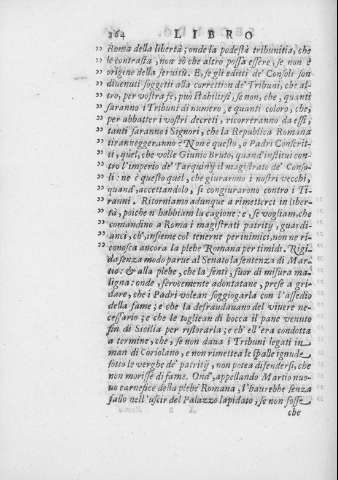 264 LIBRO
„ Roma della libertà; onde la podestà tribunitia, che
„ le contrasta, non sò che altro possa essere, se non è
„ origine della seruitù. E, se gli editti de' Consoli son
„ diuenuti soggetti alla correttion de' Tribuni, che al-
„ tro, per vostra fè, può stabilirsi, se non, che, quanti
„ saranno i Tribuni di numero, e quanti coloro, che,
„ per abbatter i vostri decreti, ricorreranno da essi,
„ tanti saranno i Signori, che la Republica Romana
„ tiranneggeranno? Non è questo, o Padri Conscrit-
„ ti, quel, che volle Giunio Bruto, quand'institui con-
„ tro l'imperio de' Tarquinij il magistrato de' Conso-
„ li: ne è questo quel, che giurarono i nostri vecchi,
„ quand, accettandolo, si congiurarono contro i Ti-
„ ranni. Ritorniamo adunque a rimetterci in liber-
„ tà, poiche n'habbiam la cagione: e, se vogliam, che
„ comandino a Roma i magistrati patritij, guardi-
„ anci, ch', insieme col temer per inimici, non ne ri-
„ conosca ancora la plebe Romana per timidi. Rigi-
da senza modo parue al Senato la sentenza di Mar-
tio: & alla plebe, che la sentì, fuor di misura ma-
ligna: onde, feruoemente adontatane, prese a gri-
dare, che i Padri volean soggiogarla con l'assedio
della fame; e che la defraudauano del viuere ne-
cessario; e che le togliean di bocca il pane venuto
fin di Sicilia per ristorarla; e ch' ell'era condotta
a termine, che, se non daua i Tribuni legati in
man di Coriolano, e non rimettea le spalle ignude
sotto le verghe de' patritij, non potea difendersi, che
non morisse di fame. Ond', appellando Martio nuo-
uo carnefice della plebe Romana, l'haurebbe senza
fallo nell'uscir del Palazzo lapidato, se non fosse
che